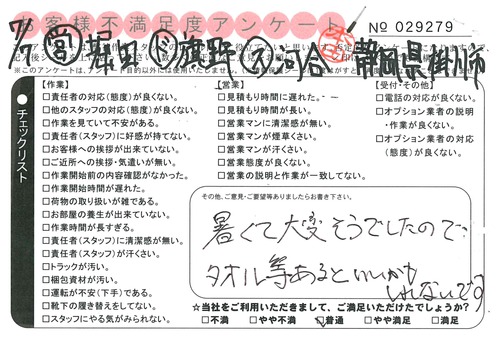 お客様不満足度アンケート
№ 029279
7/7 ㊢ 堀田 ㋛ 鷹野 ㋐ 河合
静岡県掛川市
※このアンケートは、アンケート目的以外には使用いたしません。
チェックリスト
【作業】
□責任者の対応(態度)が良くない。
□他のスタッフの対応(態度)が良くない。
□作業を見ていて不安がある。
□責任者(スタッフ)に好感が持てない。
□お客様への挨拶が出来ていない。
□ご近所への挨拶・気遣いが無い。
□作業開始前の内容確認がなかった。
□作業開始時間が遅れた。
□荷物の取り扱いが雑である。
□お部屋の養生が出来ていない。
□作業時間が長すぎる。
□責任者(スタッフ)に清潔感が無い。
□責任者(スタッフ)が汗くさい。
□トラックが汚い。
□梱包資材が汚い。
□運転が不安(下手)である。
□靴下の履き替えをしてない。
□スタッフにやる気がみられない。
【営業】
□見積もり時間に遅れた。
□見積もり時間が長い。
□営業マンに清潔感が無い。
□営業マンが煙草くさい。
□営業マンが汗くさい。
□営業態度が良くない。
□営業の説明と作業が一致してない。
【受付・その他】
□電話の対応が良くない。
□オプション業者の説明・作業が良くない。
□オプション業者の対応(態度)が良くない。
その他、ご意見・ご要望等ありましたらお書き下さい。
暑くて大変そうでしたので、
タオル等あるといいかも
しれないです
☆当社をご利用いただきまして、ご満足いただけたでしょうか?
□不満 □やや不満 □普通 □やや満足 □満足